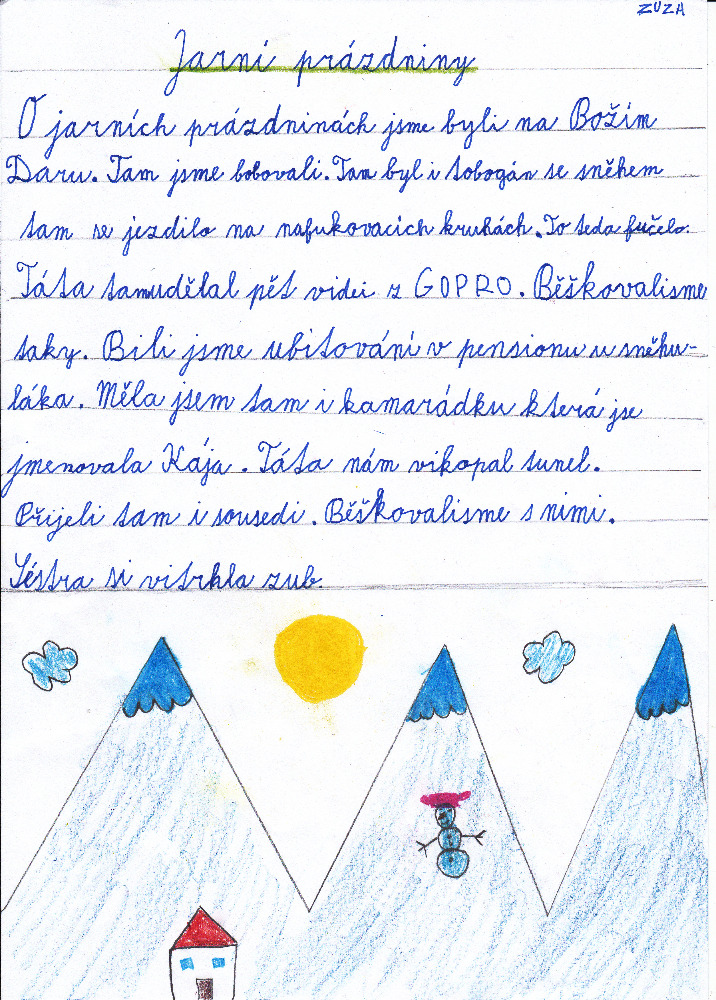 ZUZA
Jarní prázdniny
O jarních prázdninách jsme byli na Božím
Daru. Tam jsme bobovali. Tam byl i tobogán se sněhem
tam se jezdilo na nafukovacích kruhách. To teda fučelo.
Táta tamudělal pět videi z GOPRO. Běškovalisme
taky. Bili jsme ubitováni v pensionu u sněhu-
láka. Měla jsem tam i kamarádku která jse
jmenovala Kája. Táta nám vikopal tunel.
Přijeli tam i sousedi. Běškovalisme s nimi.
Séstra si vitrhla zub